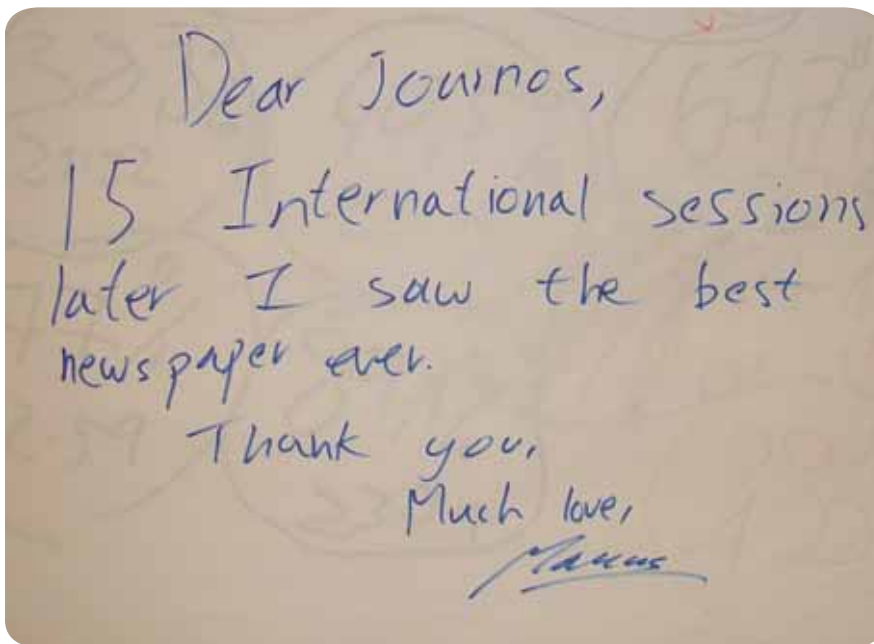 Dear Journos,
15 International sessions
later I saw the best
newspaper ever.
Thank you,
Much love,